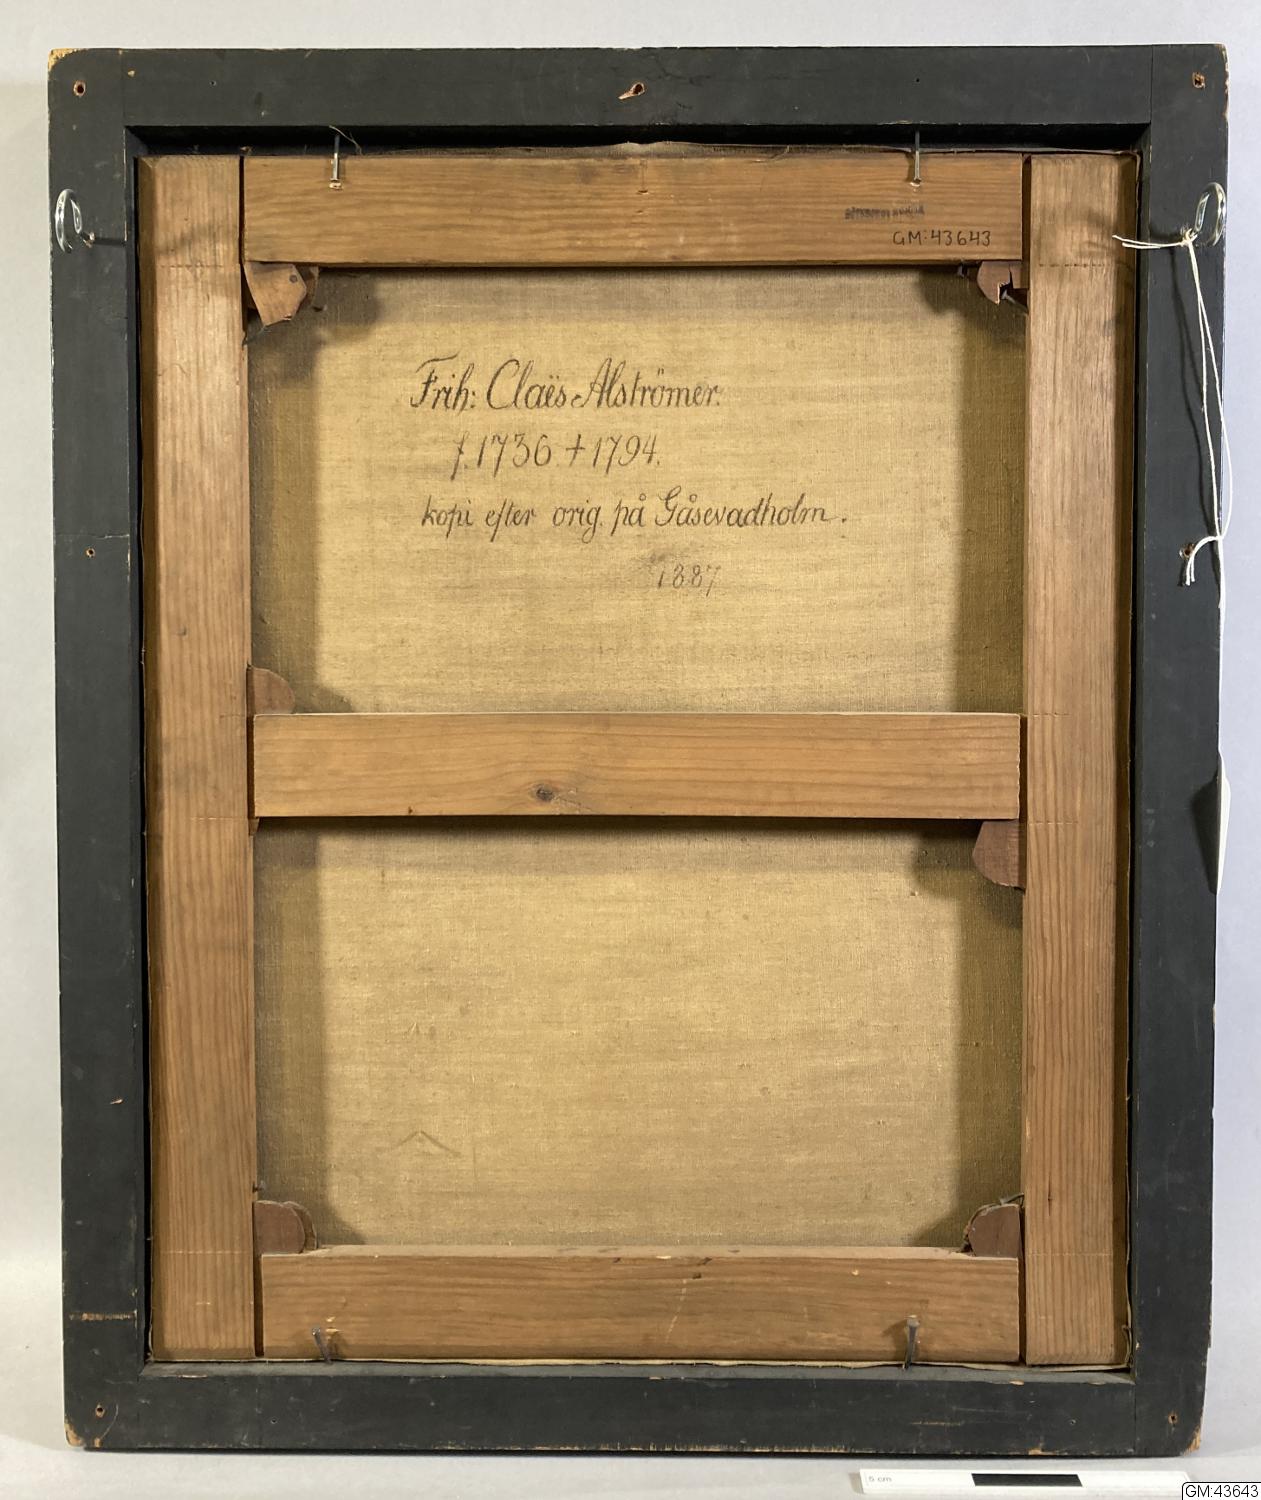 GM:43643
Frih: Claës Alströmer.
f. 1736. † 1794.
kopi efter orig. på Gåsevadholm.
1887
5 cm
GM:43643